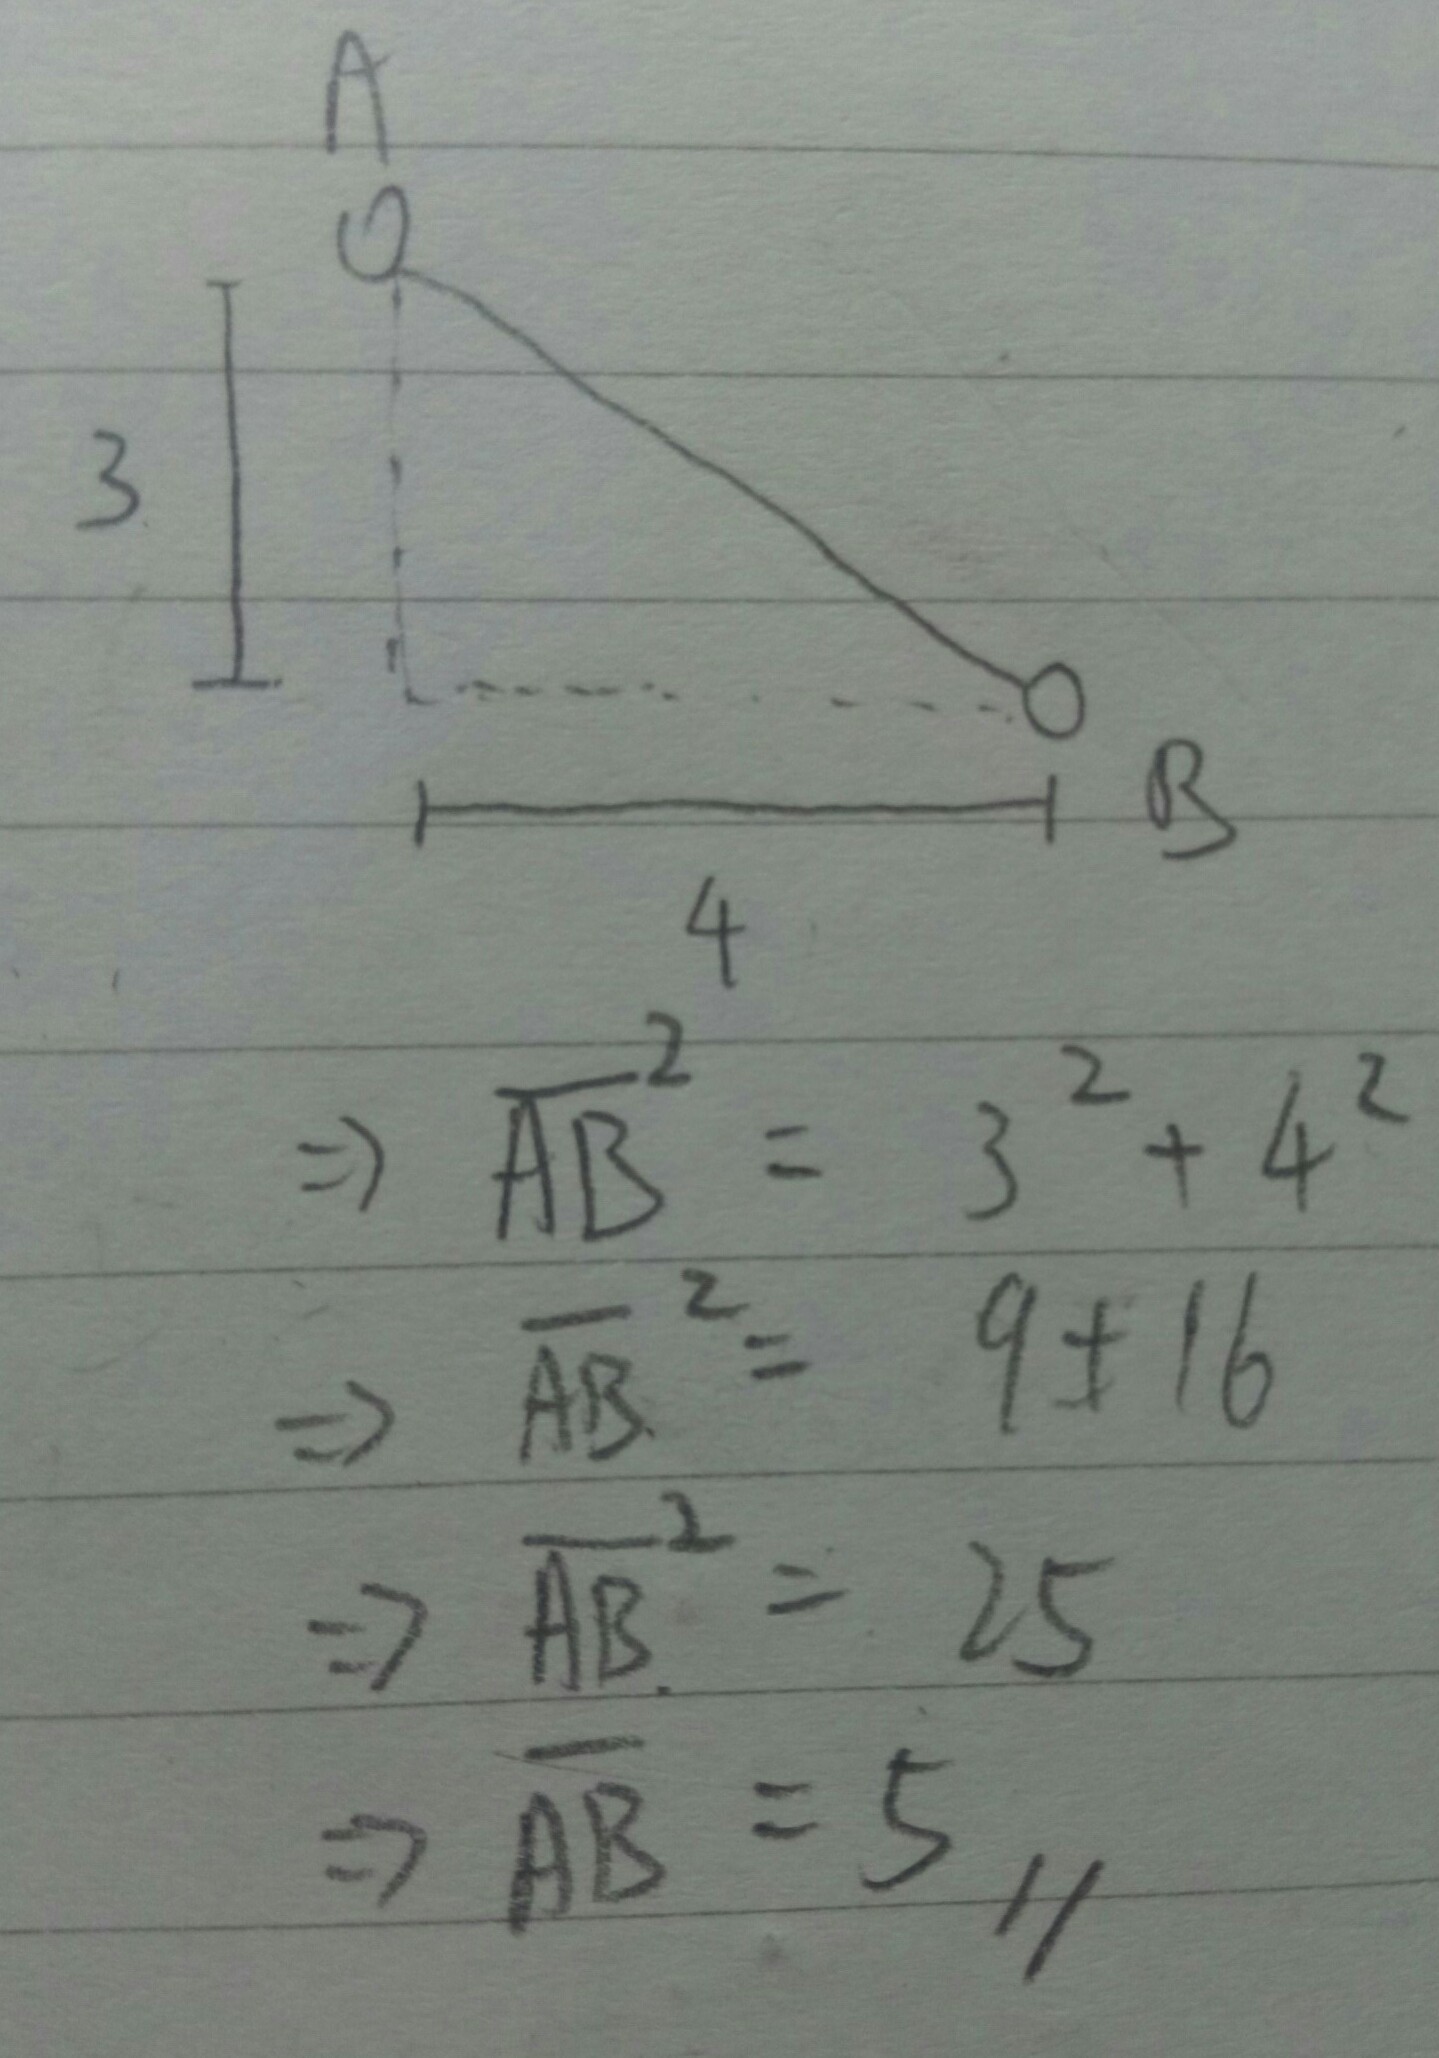 A
3
B
4
⇒ \overline{AB}² = 3² + 4²
⇒ \overline{AB}² = 9 + 16
⇒ \overline{AB}² = 25
⇒ \overline{AB} = 5 //